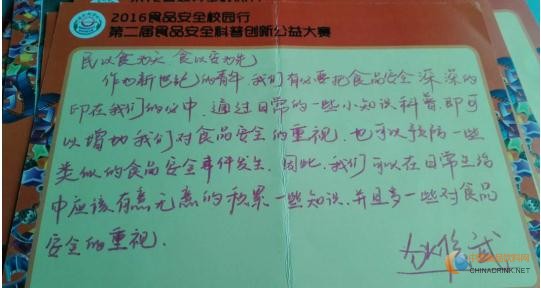 2016食品安全校园行
第二届食品安全科普创新公益大赛
民以食为天,食以安为先
作为新世纪的青年,我们有必要把食品安全深深的
印在我们的心中,通过日常的一些小知识科普,即可
以增加我们对食品安全的重视,也可以预防一些
类似的食品安全事件发生.因此,我们可以在日常生活
中应该有意无意的积累一些知识,并且多一些对食品
安全的重视.
CHINADRINK.NET